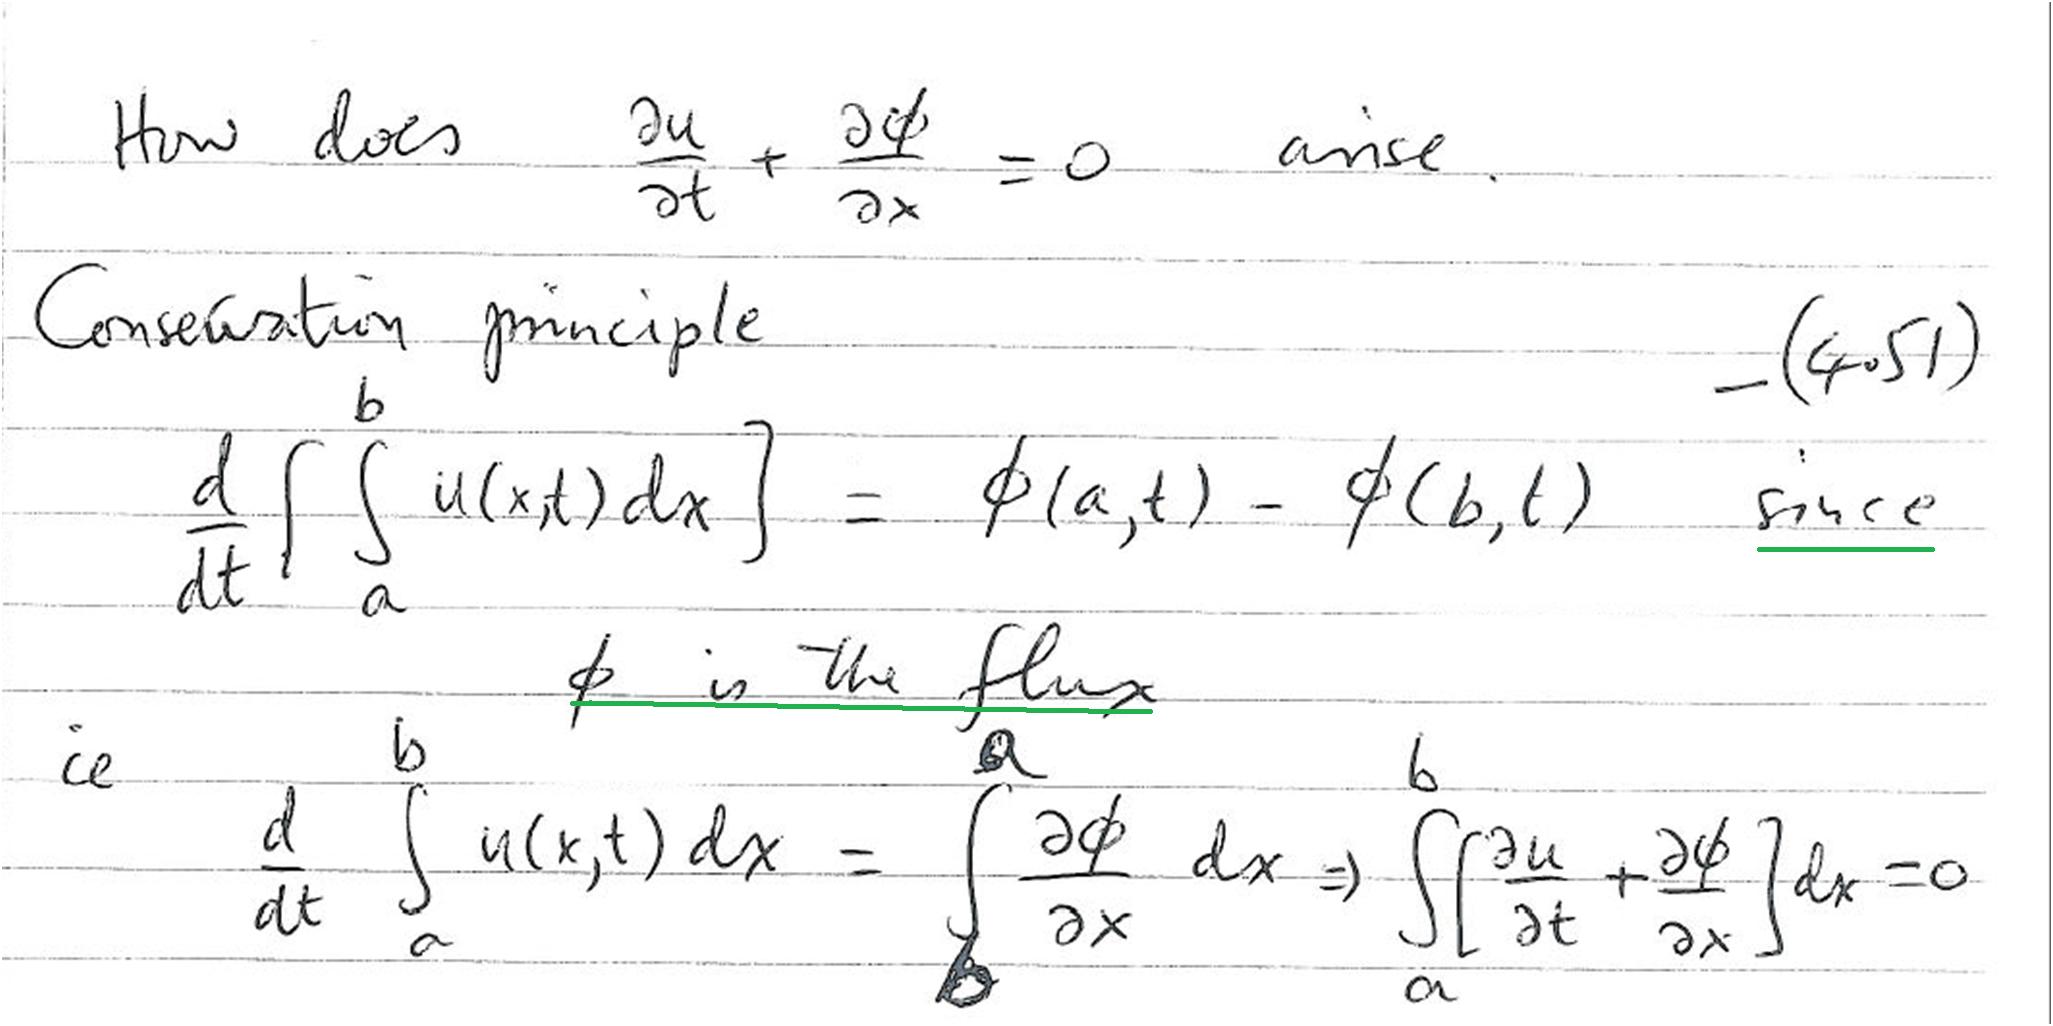 How does ∂u/∂t + ∂ϕ/∂x = 0 arise.
Conservation principle
— (4.51)
d/dt [∫_a^b u(x,t) dx] = ϕ(a,t) - ϕ(b,t) since
ϕ is the flux
ie d/dt ∫_a^b u(x,t) dx = ∫_b^a ∂ϕ/∂x dx ⇒ ∫_a^b [∂u/∂t + ∂ϕ/∂x] dx = 0